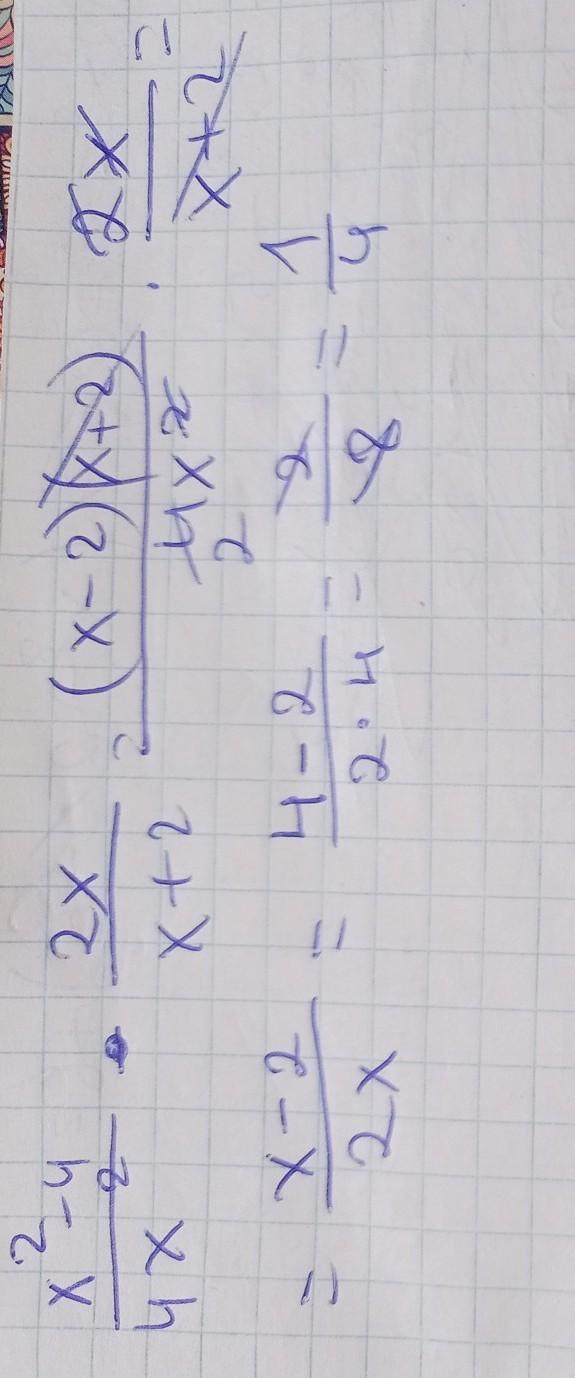 x²-4/4x² · 2x/x+2 = (x-2)(x+2)/4x² 2 · 2x/x+2 =
= x-2/2x = 4-2/2·4 = 2/8 = 1/4